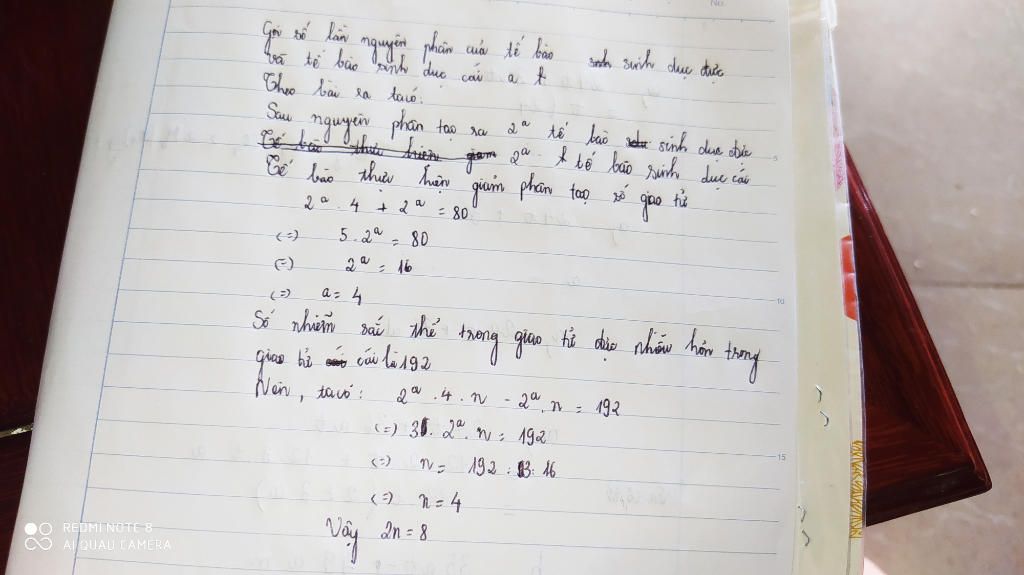 No.
Gọi số lần nguyên phân của tế bào sinh dục đực
và tế bào sinh dục cái a k
Theo bài ra ta có:
Sau nguyên phân tạo ra 2^a tế bào sinh dục đực
Tế bào thực hiện giảm 2^a . k tế bào sinh dục cái
Tế bào thực hiện giảm phân tạo số giao tử
2^a . 4 + 2^a = 80
(=) 5 . 2^a = 80
(=) 2^a = 16
(=) a = 4
Số nhiễm sắc thể trong giao tử đực nhiều hơn trong
giao tử cái là 192
Nên, ta có: 2^a . 4 . n - 2^a . n = 192
(=) 3 . 2^a . n = 192
(=) n = 192 : 3 : 16
(=) n = 4
Vậy 2n = 8
5
10
15
REDMI NOTE 8
AI QUAD CAMERA